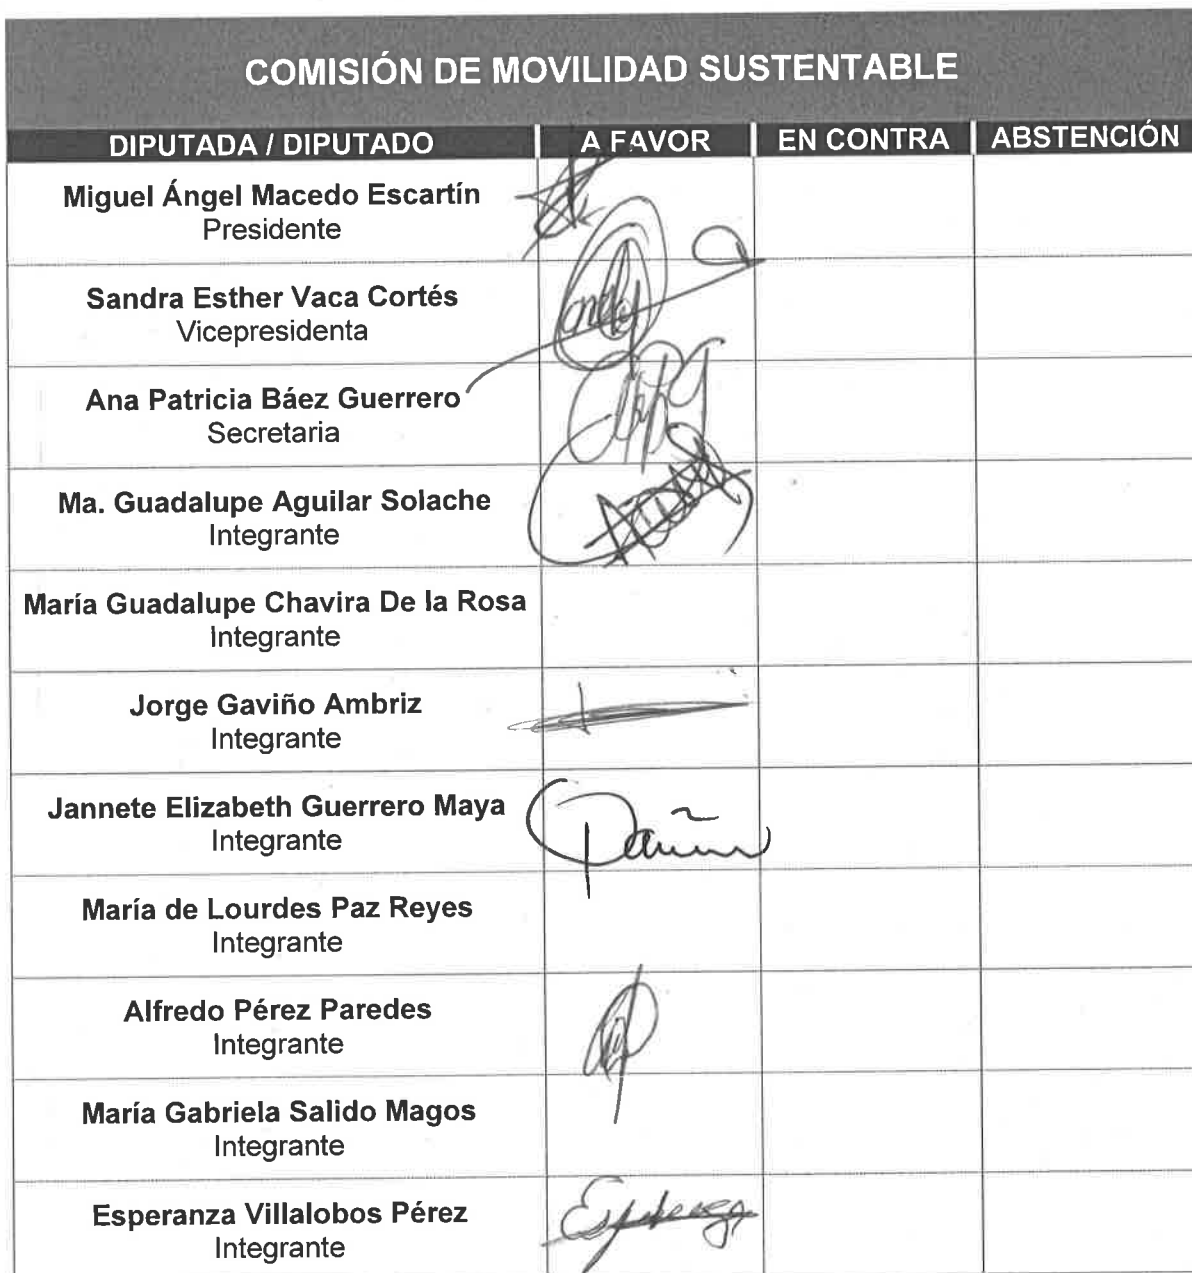 COMISIÓN DE MOVILIDAD SUSTENTABLE
DIPUTADA / DIPUTADO A FAVOR EN CONTRA ABSTENCIÓN
Miguel Ángel Macedo Escartín
Presidente
Sandra Esther Vaca Cortés
Vicepresidenta
Ana Patricia Báez Guerrero
Secretaria
Ma. Guadalupe Aguilar Solache
Integrante
María Guadalupe Chavira De la Rosa
Integrante
Jorge Gaviño Ambriz
Integrante
Jannete Elizabeth Guerrero Maya
Integrante
María de Lourdes Paz Reyes
Integrante
Alfredo Pérez Paredes
Integrante
María Gabriela Salido Magos
Integrante
Esperanza Villalobos Pérez
Integrante